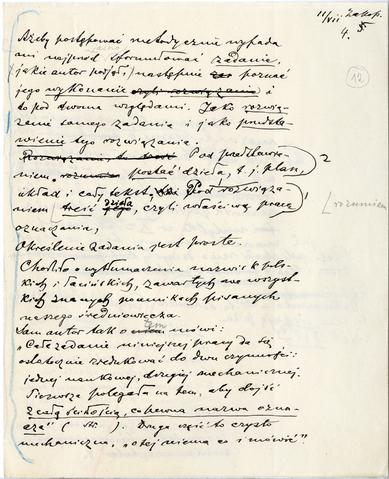 11/VII Zakop.
4.
12
Ażeby postępować metodycznie wypada
mi najprzód sformułować zadanie,
jakie autor podjął i następnie poznać
jego wykonanie czyli rozwiązanie i
to pod dwoma względami. Jako rozwią-
zanie samego zadania i jako przedsta-
wienie tego rozwiązania.
Pod przedstawie- 2
niem rozumiem postać dzieła, t. j. plan,
układ i cały tekst, Pod rozwiąza-
niem treść dzieła, czyli właściwą pracę 1
oznaczania, [rozumiem
Określenie zadania jest proste.
Chodziło o wytłumaczenie nazwisk pol-
skich i łacińskich, zawartych we wszyst-
kich znanych pomnikach pisanych
naszego średniowiecza.
Sam autor tak o tem mówi:
"Całe zadanie niniejszej pracy da się
ostatecznie zredukować do dwu czynności:
jednej naukowej, drugiej mechanicznej.
Pierwsza polegała na tem, aby dojść
z całą ścisłością, co pewna nazwa ozna-
cza" ( str. ). Druga część to czysto
mechaniczna, "o tej niema co i mówić".